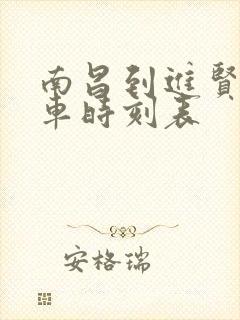 南昌到进贤
车时刻表
安格瑞